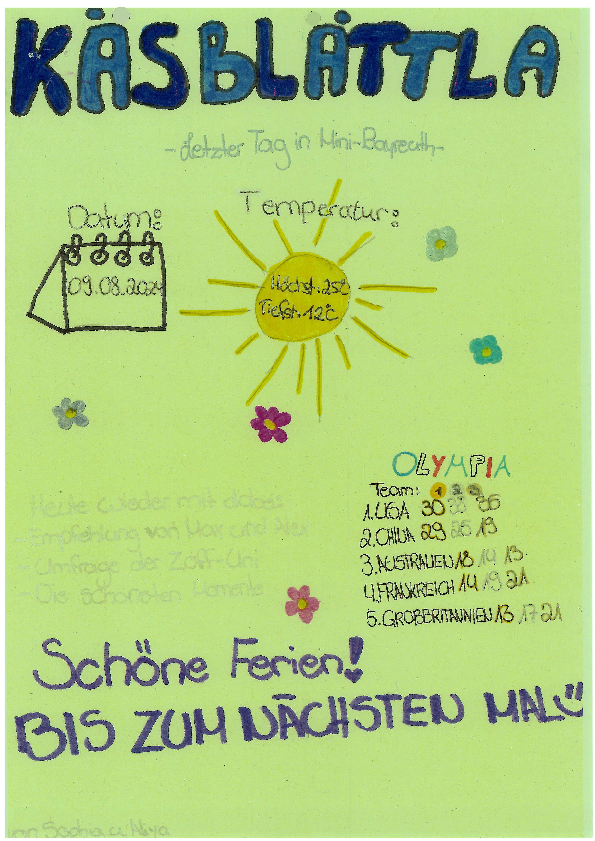 KÄSBLÄTTLA
- Letzter Tag in Mini-Bayreuth -
Datum:
09.08.2024
Temperatur:
Höchst. 25°C
Tiefst. 12°C
OLYMPIA
Team: 1 2 3
1. USA 30 38 35
2. CHINA 29 25 19
3. AUSTRALIEN 18 14 13
4. FRANKREICH 14 19 21
5. GROßBRITANNIEN 13 17 21
Heute wieder mit dabei:
- Empfehlung von Max und Alex
- Umfrage der Zoff-Uni
- Die schönsten Momente
Schöne Ferien!
BIS ZUM NÄCHSTEN MAL
von Sophia u. Aliya